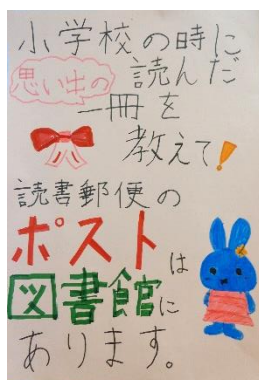 小学校の時に
思い出の
読んだ
一冊を
教えて!
読書郵便の
ポストは
図書館に
あります。